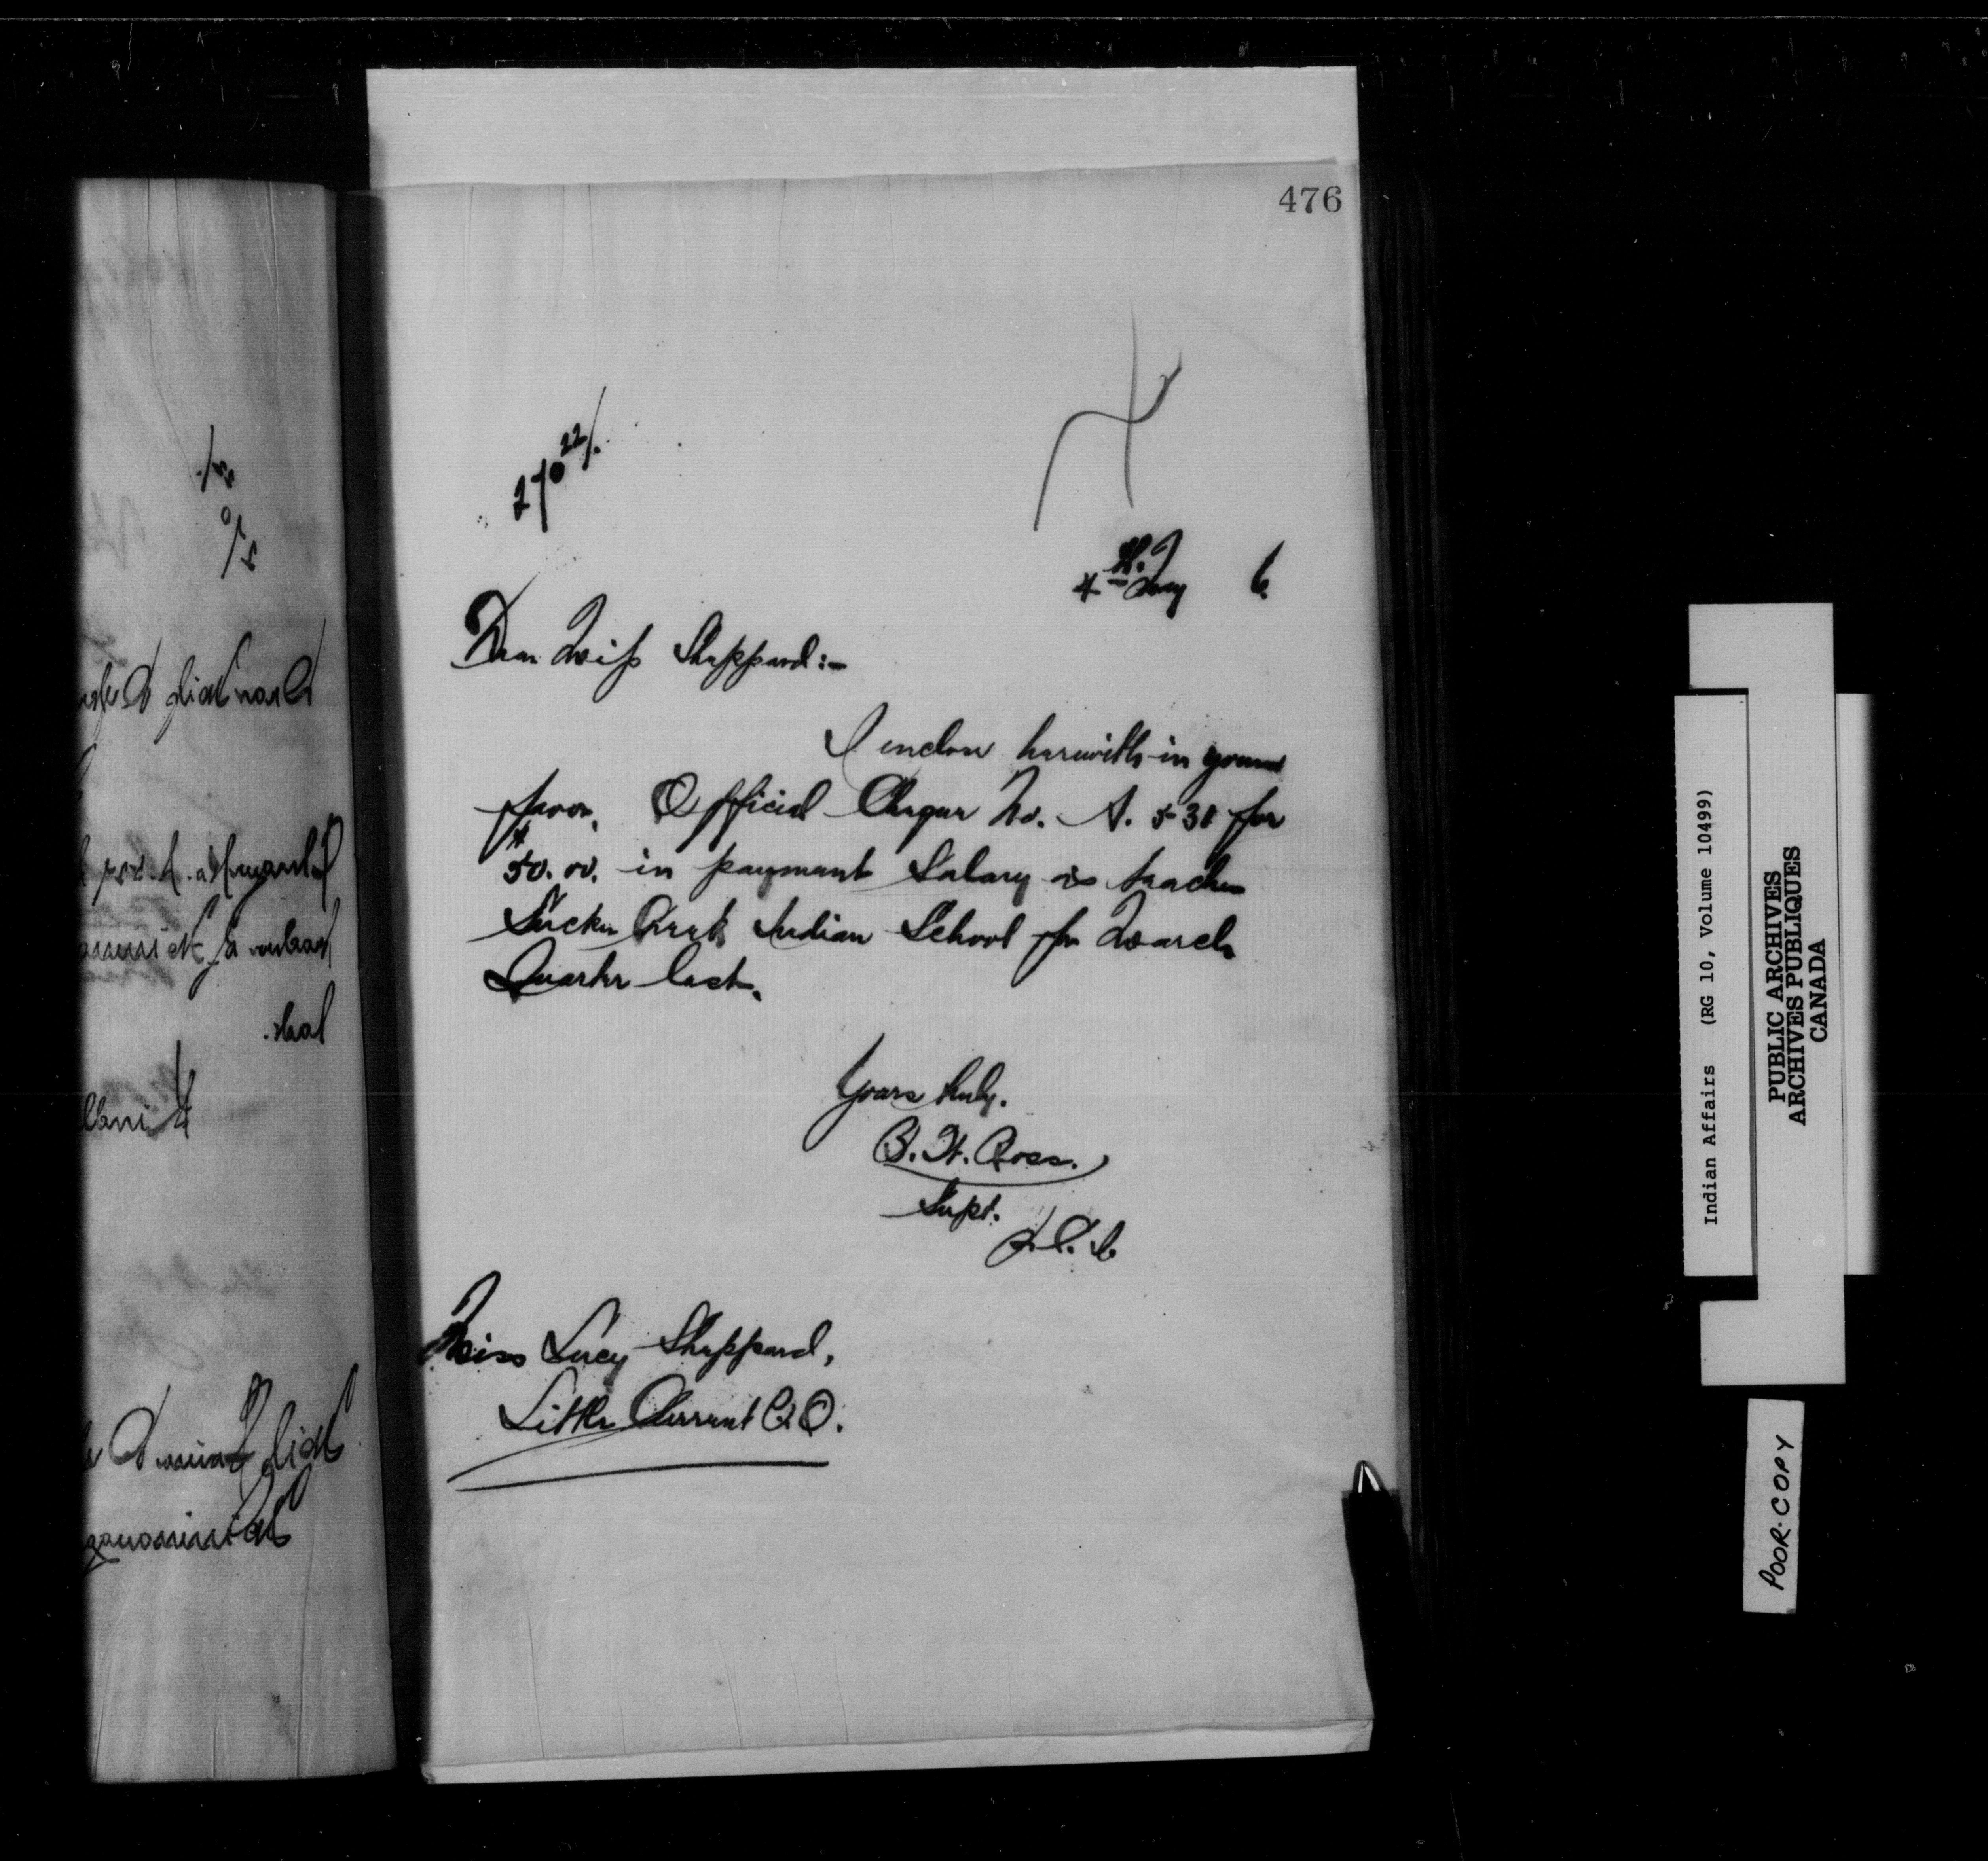 476
270 22/.
4th May 6.
Dear Miss Sheppard:-
I enclose herewith in your
favor, Official Cheque No. A. 538 for
$50.00. in payment Salary as teacher
Sucker Creek Indian School for March
Quarter last.
Yours truly.
B. W. Ross.
Supt.
Miss Lucy Sheppard,
Little Current P.O.
Indian Affairs (RG 10, Volume 10499)
PUBLIC ARCHIVES
ARCHIVES PUBLIQUES
CANADA
POOR-COPY